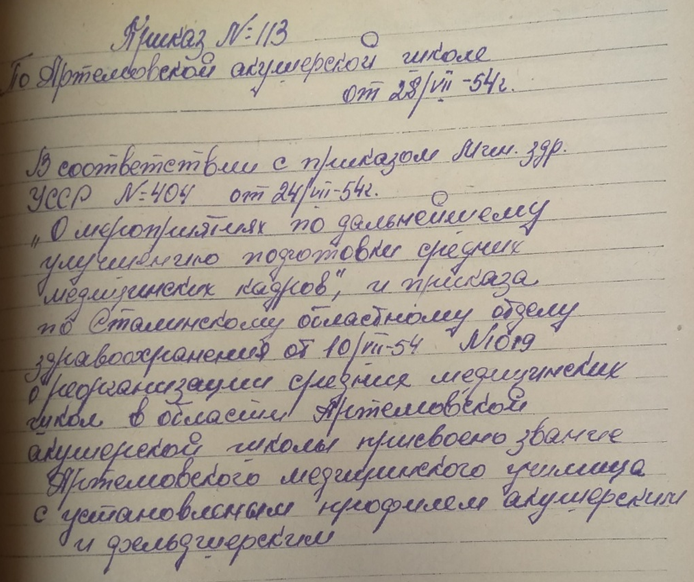 Приказ №113
По Артемовской акушерской школе
от 28/VII-54г.
В соответствии с приказом Мин. здр.
УССР №404 от 24/VII-54г.
„О мероприятиях по дальнейшему
улучшению подготовки средних
медицинских кадров", и приказа
по Сталинскому областному отделу
здравоохранения от 10/VIII-54 №1019
о реорганизации средних медицинских
школ в области Артемовской
акушерской школы присвоено звание
Артемовского медицинского училища
с установленым профилем акушерским
и фельдшерским